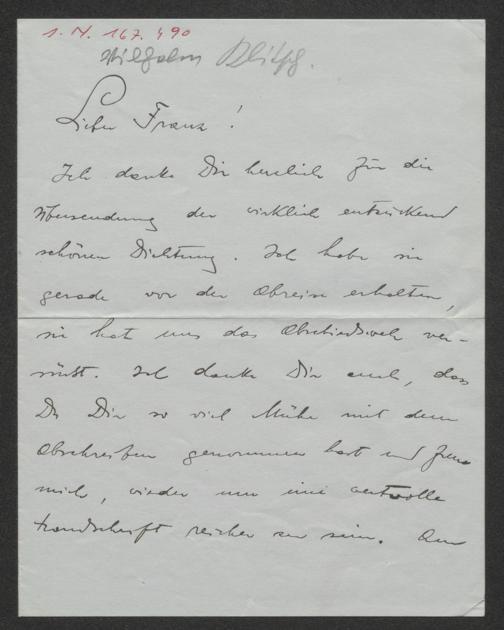 I. N. 167.490
Wilhelm
Lieber Franz!
Ich danke Dir herzlich für die
Übersendung der wirklich entzückend
schönen Dichtung. Ich habe sie
gerade vor der Abreise erhalten,
sie hat uns das Abschiedsweh ver-
süßt. Ich danke Dir auch, dass
Du Dir so viel Mühe mit dem
Abschreiben genommen hast und freue
mich, wieder um eine wertvolle
Handschrift reicher zu sein. Am